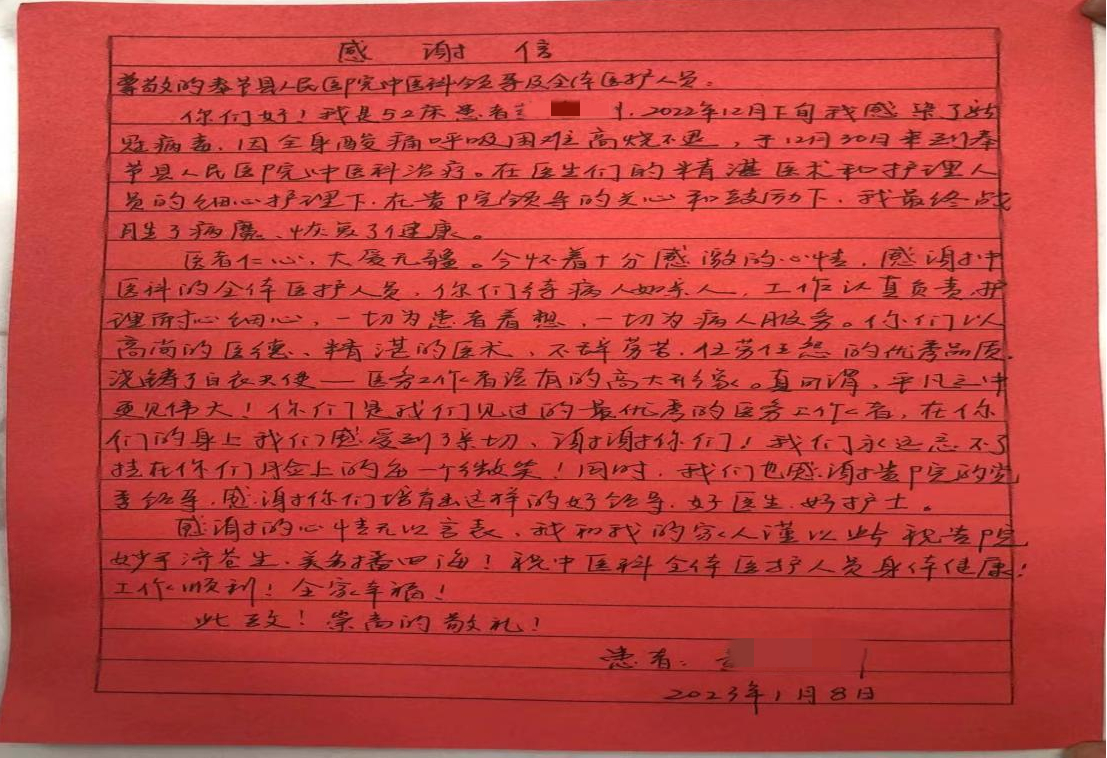 感谢信
尊敬的奉节县人民医院中医科领导及全体医护人员:
你们好!我是52床患者 ，2022年12月下旬我感染了新
冠病毒，因全身酸痛呼吸困难高烧不退，于12月30日来到奉
节县人民医院中医科治疗。在医生们的精湛医术和护理人
员的细心护理下，在贵院领导的关心和鼓励下，我最终战
胜了病魔、恢复了健康。
医者仁心，大爱无疆。今怀着十分感激的心情，感谢中
医科的全体医护人员，你们待病人如亲人，工作认真负责，护
理耐心细心，一切为患者着想，一切为病人服务。你们以
高尚的医德、精湛的医术、不辞劳苦，任劳任怨的优秀品质，
浇铸了白衣天使—医务工作者该有的高大形象。真可谓，平凡之中
更见伟大！你们是我们见过的最优秀的医务工作者，在你
们的身上我们感受到了亲切、谢谢你们！我们永远忘不了
挂在你们脸上的每一个微笑！同时，我们也感谢贵院的党
委领导，感谢你们培育出这样的好领导、好医生、好护士。
感谢的心情无以言表，我和我的家人谨以此祝贵院
妙手济苍生，美名播四海！祝中医科全体医护人员身体健康！
工作顺利！全家幸福！
此致！崇高的敬礼！
患者：
2023年1月8日